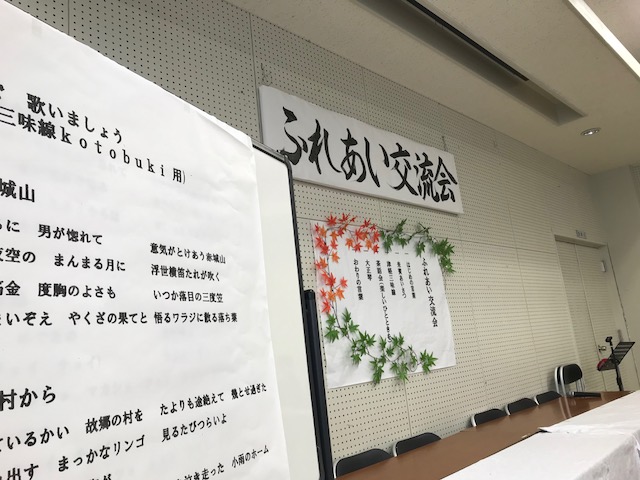 歌いましょう
三味線kotobuki用)
城山
に 男が惚れて 意気がとけあう赤城山
空の まんまる月に 浮世横笛たれが吹く
金 度胸のよさも いつか落目の三度笠
いぞえ やくざの果てと 悟るワラジに散る落ち葉
村から
ているかい 故郷の村を たよりも途絶えて 幾とせ過ぎた
出す まっかなリンゴ 見るたびつらいよ
走った 小雨のホーム
ふれあい交流会
ふれあい交流会
はじめの言葉
来賓あいさつ
津軽三味線
茶話会(楽しいひととき)
大正琴
おわりの言葉